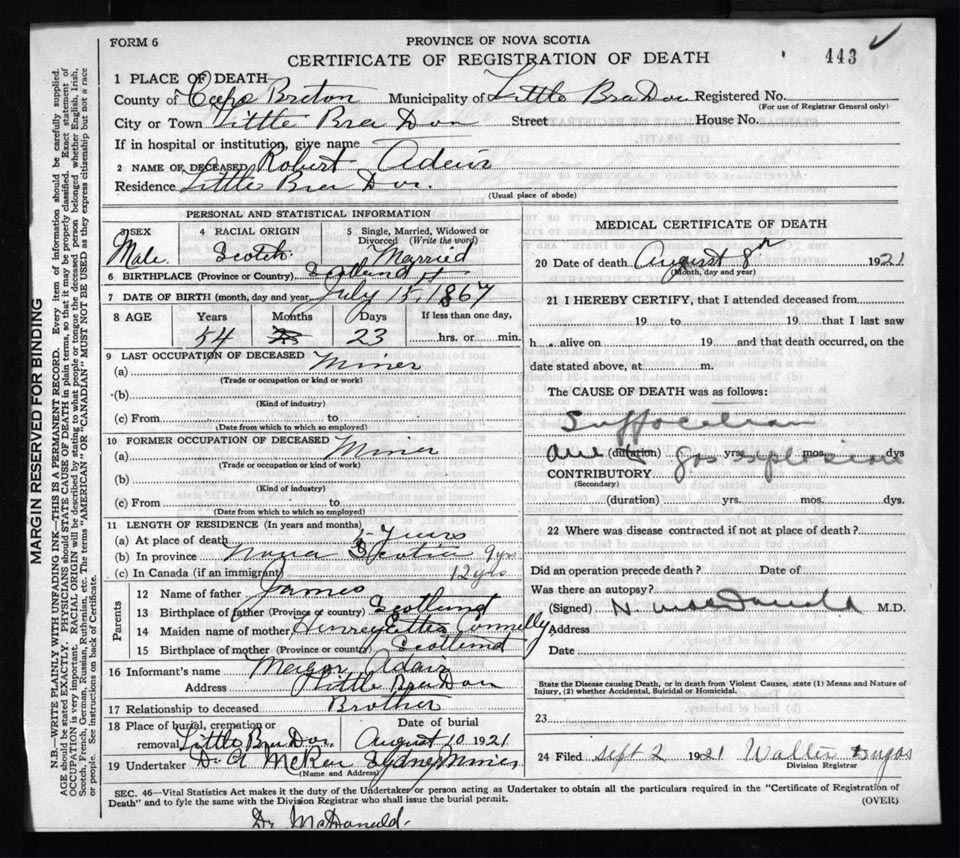 FORM 6
PROVINCE OF NOVA SCOTIA
CERTIFICATE OF REGISTRATION OF DEATH
443 ✓
MARGIN RESERVED FOR BINDING
N.B.—WRITE PLAINLY WITH UNFADING INK—THIS IS A PERMANENT RECORD. Every item of information should be carefully supplied.
AGE should be stated EXACTLY. PHYSICIANS should STATE CAUSE OF DEATH in plain terms, so that it may be properly classified. Exact statement of
OCCUPATION is very important. RACIAL ORIGIN will be described by stating to what people or tongue the deceased person belonged whether English, Irish,
Scotch, French, German, Russian, Ruthenian, etc. The terms "AMERICAN" OR "CANADIAN" MUST NOT BE USED as they express citizenship but not a race
or people. See instructions on back of Certificate.
1 PLACE OF DEATH
County of Cape Breton Municipality of Little Bra Dor Registered No.
(For use of Registrar General only)
City or Town Little Bra Dor Street House No.
If in hospital or institution, give name
2 NAME OF DECEASED Robert Adair
Residence Little Bra Dor.
(Usual place of abode)
PERSONAL AND STATISTICAL INFORMATION
3 SEX 4 RACIAL ORIGIN 5 Single, Married, Widowed or
Divorced (Write the word)
Male. Scotch. Married
6 BIRTHPLACE (Province or Country) Scotland
7 DATE OF BIRTH (month, day and year) July 15, 1867
8 AGE Years Months Days If less than one day,
54 23 hrs. or min.
9 LAST OCCUPATION OF DECEASED
(a) Miner
(Trade or occupation or kind or work)
(b)
(Kind of industry)
(c) From to
(Date from which to which so employed)
10 FORMER OCCUPATION OF DECEASED
(a) Miner
(Trade or occupation or kind of work)
(b)
(Kind of industry)
(c) From to
(Date from which to which so employed)
11 LENGTH OF RESIDENCE (In years and months)
(a) At place of death Years
(b) In province Nova Scotia 9 yrs
(c) In Canada (if an immigrant) 12 yrs
Parents
12 Name of father James
13 Birthplace of father (Province or country) Scotland
14 Maiden name of mother Connelly
15 Birthplace of mother (Province or country) Scotland
16 Informant's name Adair
Address Little Bra Dor
17 Relationship to deceased Brother
18 Place of burial, cremation or Date of burial
removal Little Bra Dor. August 10 1921
19 Undertaker Sydney Mines
(Name and Address)
MEDICAL CERTIFICATE OF DEATH
20 Date of death August 8th 1921
(Month, day and year)
21 I HEREBY CERTIFY, that I attended deceased from
19 to 19 that I last saw
h alive on 19 and that death occurred, on the
date stated above, at m.
The CAUSE OF DEATH was as follows:
Suffocation
(duration) yrs. mos. dys
gas explosion
CONTRIBUTORY
(Secondary)
(duration) yrs. mos. dys.
22 Where was disease contracted if not at place of death?
Did an operation precede death? Date of
Was there an autopsy?
(Signed) N. McDonald M.D.
Address
Date
State the Disease causing Death, or in death from Violent Causes, state (1) Means and Nature of
Injury, (2) whether Accidental, Suicidal or Homicidal.
23
24 Filed Sept 2 1921 Walter Dugas
Division Registrar
SEC. 46—Vital Statistics Act makes it the duty of the Undertaker or person acting as Undertaker to obtain all the particulars required in the "Certificate of Registration of
Death" and to fyle the same with the Division Registrar who shall issue the burial permit.
(OVER)
Dr McDonald.